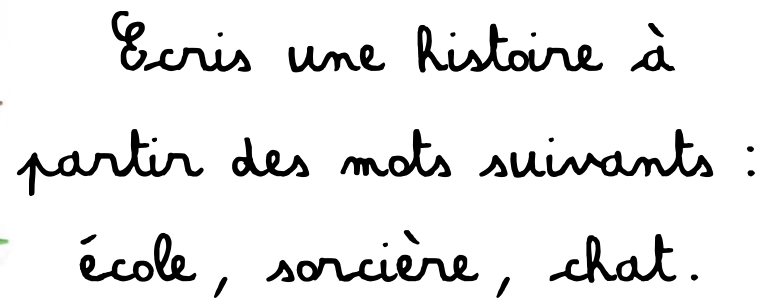 Ecris une histoire à
partir des mots suivants :
école, sorcière, chat.